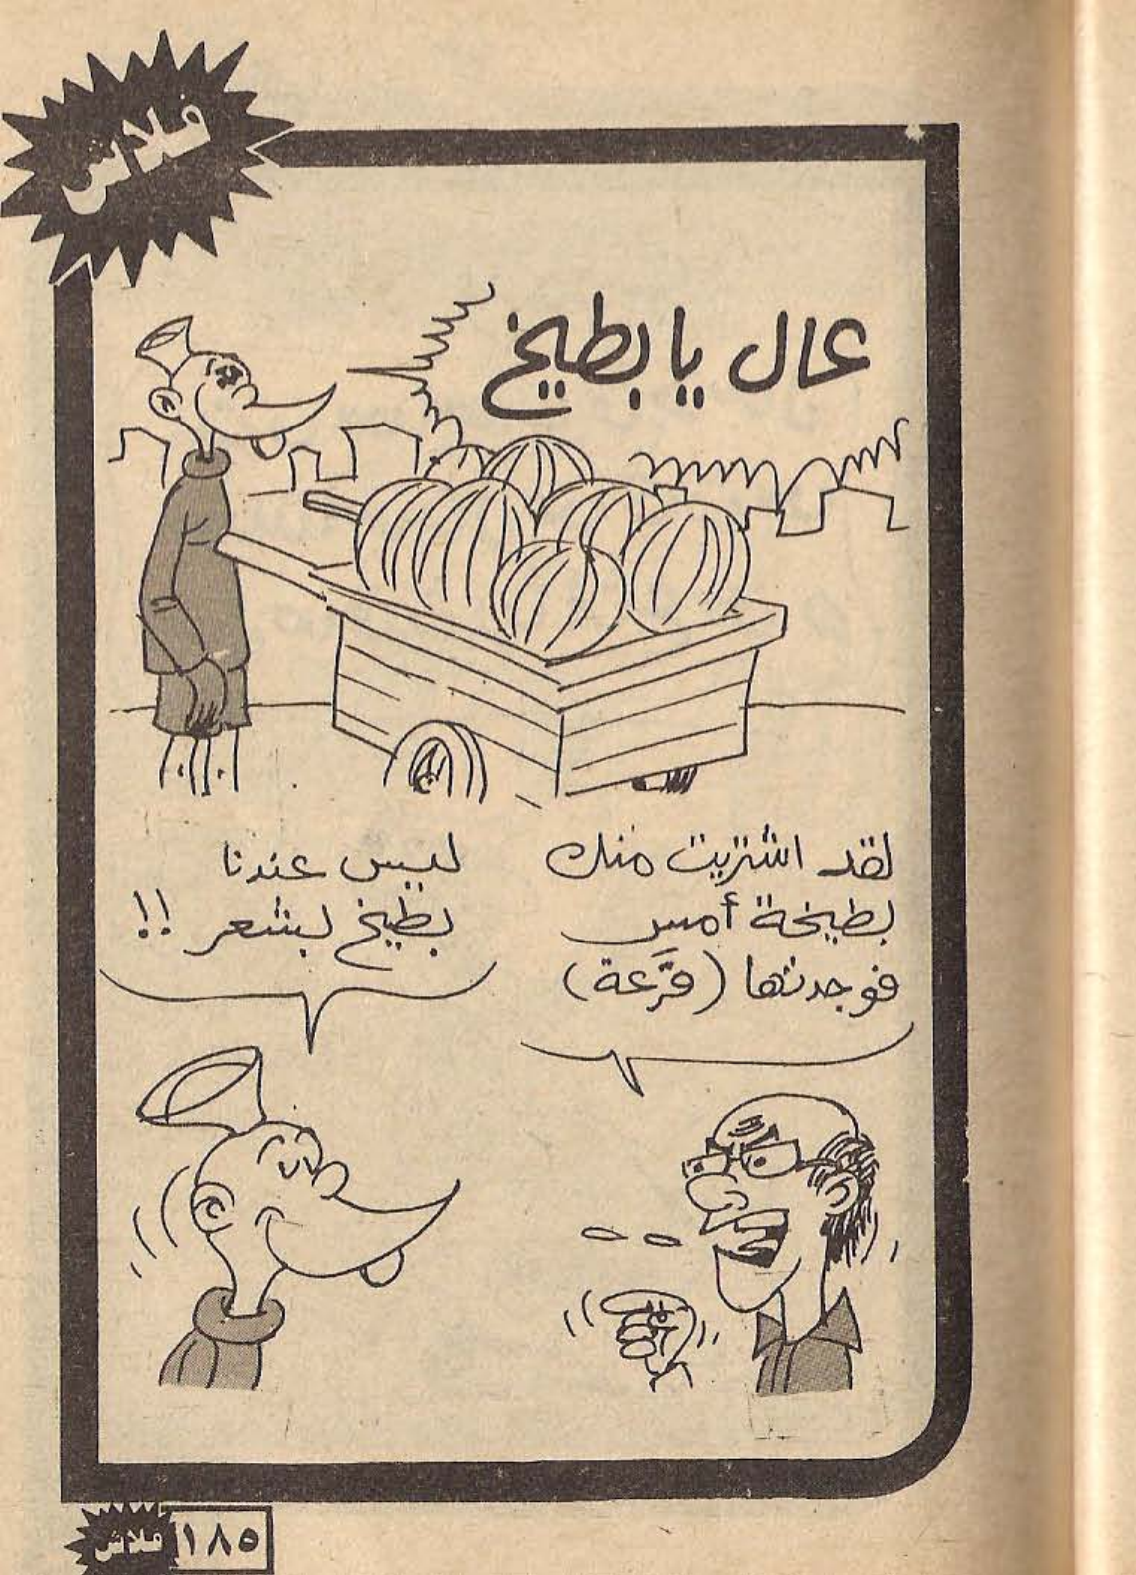 فلاش
عال يا بطيخ
لقد اشتريت منك
بطيخة أمس
فوجدتها (قَرعة)
ليس عندنا
بطيخ بشعر !!
١٨٥
فلاش